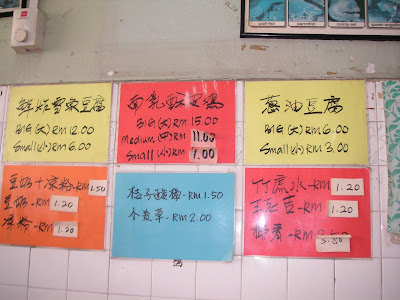 豆腐
BIG (大) RM 12.00
Small (小) RM 6.00
南乳鸡
BIG (大) RM 15.00
Medium (中) RM 11.00
Small (小) 7.00
葱油豆腐
BIG (大) RM 6.00
Small (小) RM 3.00
豆奶+凉粉-RM 1.50
豆奶-RM 1.20
凉粉-1.20
桔子酸梅-RM 1.50
小麦草-RM 2.00
竹蔗水-RM 1.20
王老吉-RM 1.20